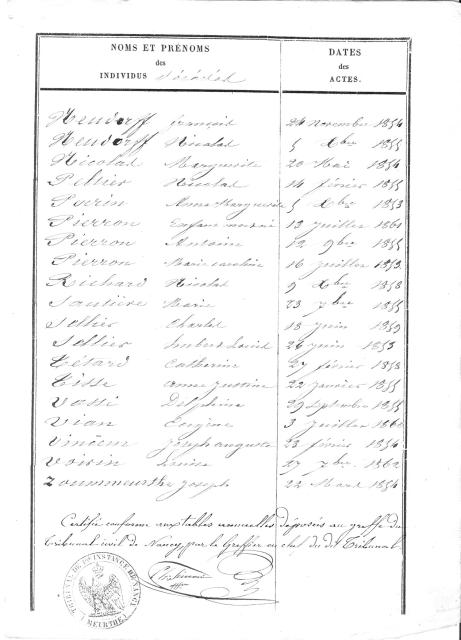 NOMS ET PRÉNOMS
des
INDIVIDUS décédés
DATES
des
ACTES.
Neudorff françois 24 Novembre 1854
Neudorff Nicolas 5 Xbre 1855
Nicolas Marguerite 20 Mai 1854
Peltier Nicolas 14 février 1855
Perrin Anne Marguerite 5 Xbre 1853
Pierron Enfant mort né 13 juillet 1861
Pierron Antoine 12 9bre 1855
Pierron Marie 16 juillet 1853
Richard Nicolas 9 Xbre 1858
Sautière Marie 23 7bre 1855
Sellier Charles 18 juin 1859
Sellier Louis 26 juin 1853
Tétard Catherine 27 février 1858
Tisse anne justine 22 janvier 1855
Vassé Delphine 29 Septembre 1855
Vian Eugène 3 juillet 1861
Vincent joseph auguste 23 février 1854
Voirin Louise 27 7bre 1862
joseph 22 Mars 1854
Certifié conforme aux tables annuelles déposées au greffe du
Tribunal civil de Nancy, par le Greffier en chef du dit Tribunal
TRIBUNAL DE 1RE INSTANCE DE NANCY
(MEURTHE)